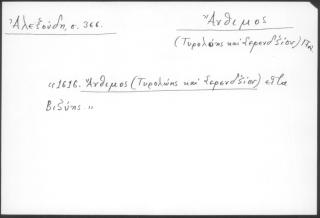 Ἀλεξούδη, σ. 366.
Ἄνθιμος
(Τυρολόης καὶ Σερεντζίου)
"1616. Ἄνθιμος (Τυρολόης καὶ Σερεντζίου) εἶτα
Βιζύης."